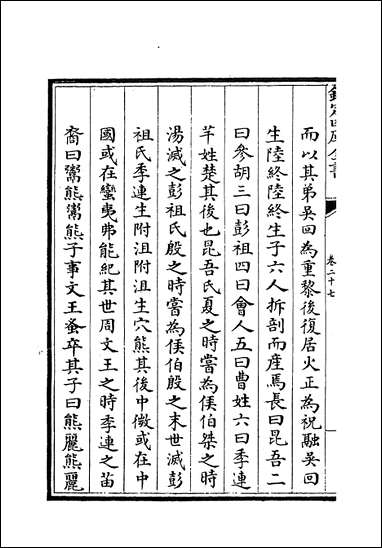 欽定四庫全書
卷二十七
而以其弟吳回為重黎後復居火正為祝融吳回
生陸終陸終生子六人拆剖而產焉長曰昆吾二
曰參胡三曰彭祖四曰會人五曰曹姓六曰季連
芊姓楚其後也昆吾氏夏之時嘗為侯伯桀之時
湯滅之彭祖氏殷之時嘗為侯伯殷之末世滅彭
祖氏季連生附沮附沮生穴熊其後中微或在中
國或在蠻夷弗能紀其世周文王之時季連之苗
裔曰鬻熊鬻熊子事文王蚤卒其子曰熊麗熊麗